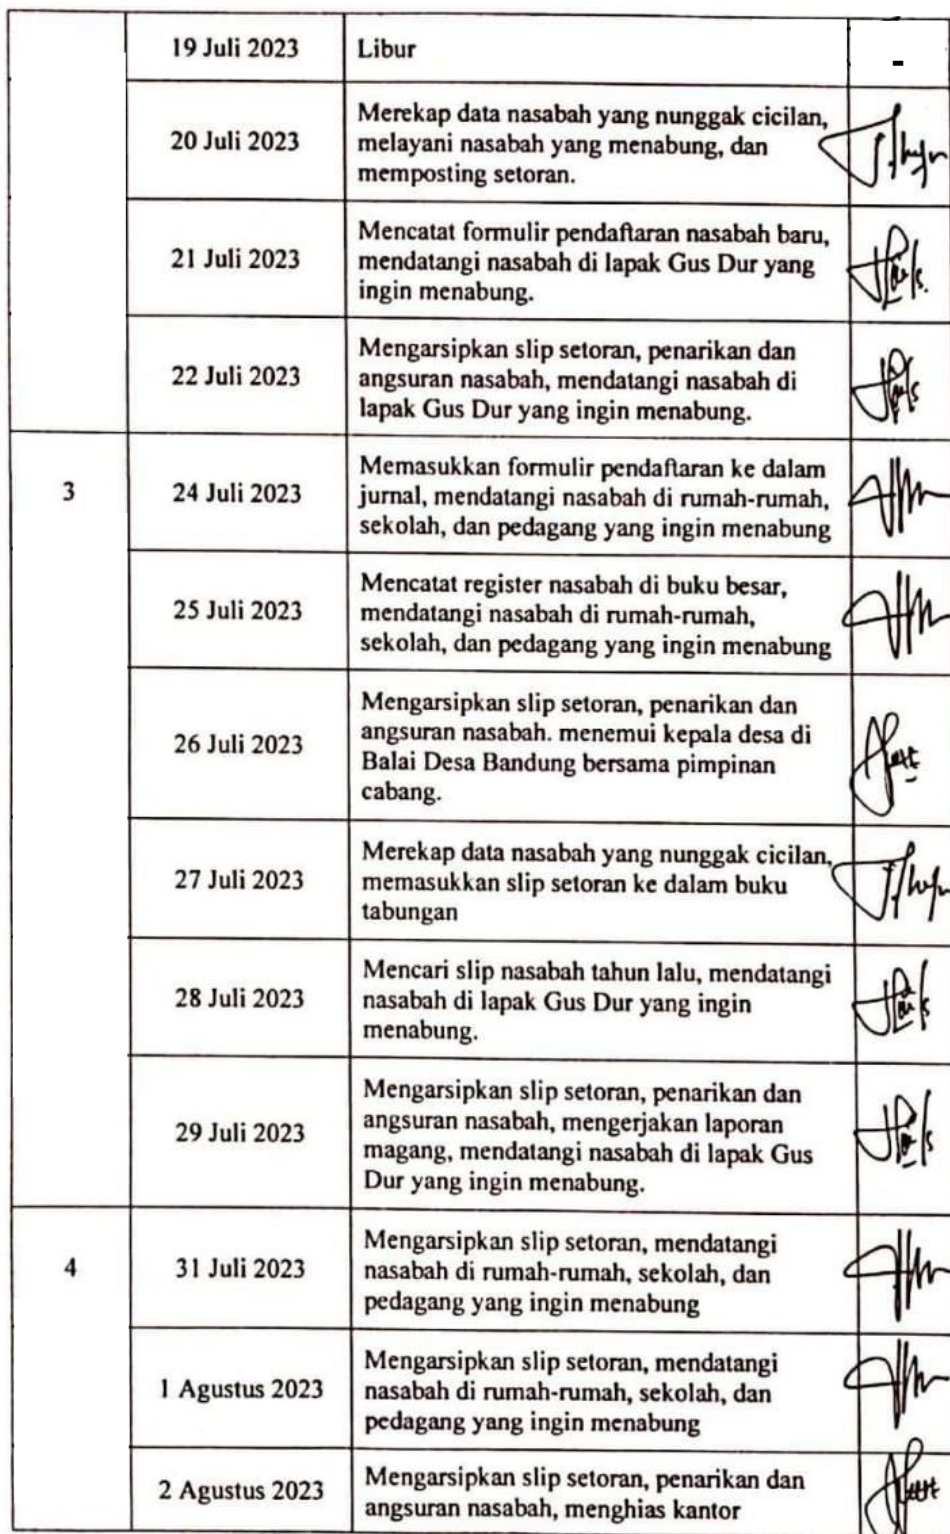 19 Juli 2023
Libur
-
20 Juli 2023
Merekap data nasabah yang nunggak cicilan,
melayani nasabah yang menabung, dan
memposting setoran.
21 Juli 2023
Mencatat formulir pendaftaran nasabah baru,
mendatangi nasabah di lapak Gus Dur yang
ingin menabung.
22 Juli 2023
Mengarsipkan slip setoran, penarikan dan
angsuran nasabah, mendatangi nasabah di
lapak Gus Dur yang ingin menabung.
3
24 Juli 2023
Memasukkan formulir pendaftaran ke dalam
jurnal, mendatangi nasabah di rumah-rumah,
sekolah, dan pedagang yang ingin menabung
25 Juli 2023
Mencatat register nasabah di buku besar,
mendatangi nasabah di rumah-rumah,
sekolah, dan pedagang yang ingin menabung
26 Juli 2023
Mengarsipkan slip setoran, penarikan dan
angsuran nasabah. menemui kepala desa di
Balai Desa Bandung bersama pimpinan
cabang.
27 Juli 2023
Merekap data nasabah yang nunggak cicilan,
memasukkan slip setoran ke dalam buku
tabungan
28 Juli 2023
Mencari slip nasabah tahun lalu, mendatangi
nasabah di lapak Gus Dur yang ingin
menabung.
29 Juli 2023
Mengarsipkan slip setoran, penarikan dan
angsuran nasabah, mengerjakan laporan
magang, mendatangi nasabah di lapak Gus
Dur yang ingin menabung.
4
31 Juli 2023
Mengarsipkan slip setoran, mendatangi
nasabah di rumah-rumah, sekolah, dan
pedagang yang ingin menabung
1 Agustus 2023
Mengarsipkan slip setoran, mendatangi
nasabah di rumah-rumah, sekolah, dan
pedagang yang ingin menabung
2 Agustus 2023
Mengarsipkan slip setoran, penarikan dan
angsuran nasabah, menghias kantor